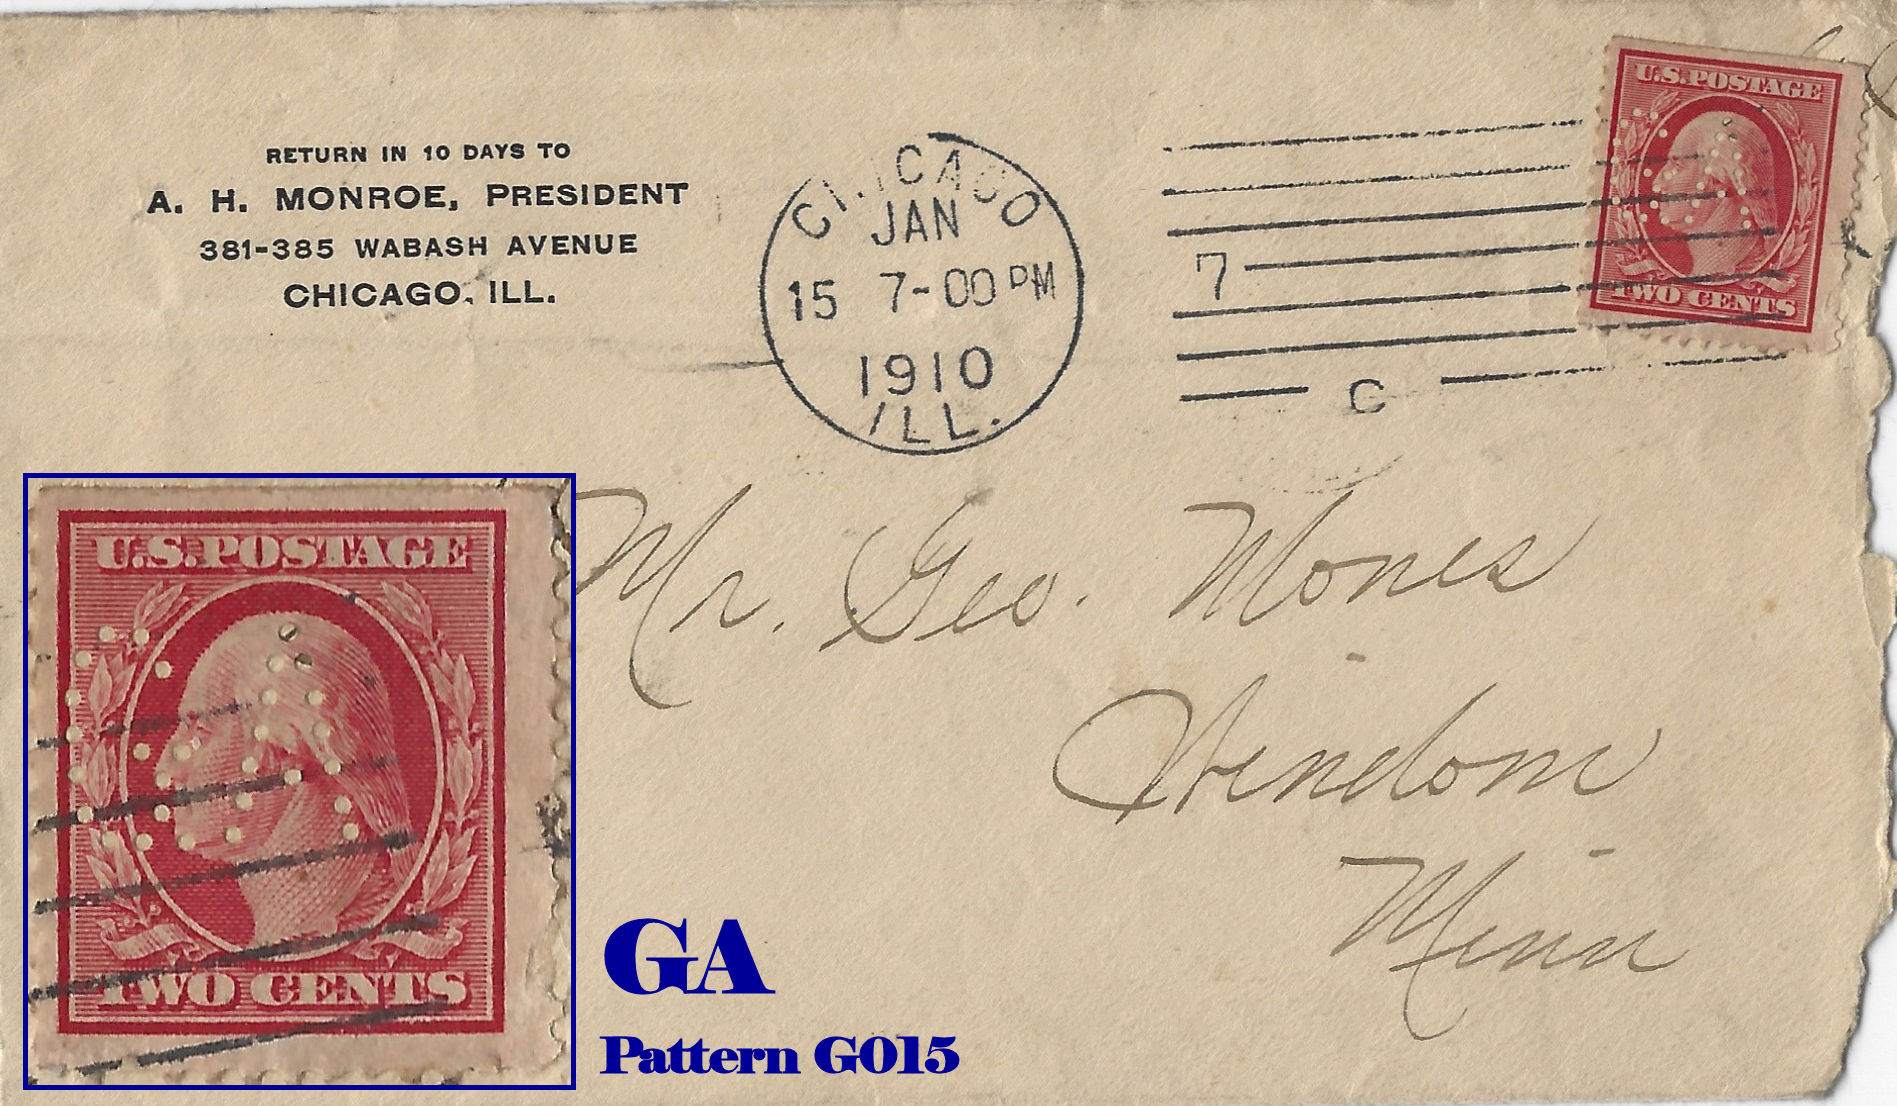 RETURN IN 10 DAYS TO
A. H. MONROE, PRESIDENT
381-385 WABASH AVENUE
CHICAGO, ILL.
CHICAGO
JAN
15 7-00 PM
1910
ILL.
7
C
U.S. POSTAGE
TWO CENTS
Mr. Geo. Mones
Windom
Minn
U.S. POSTAGE
TWO CENTS
GA
Pattern G015